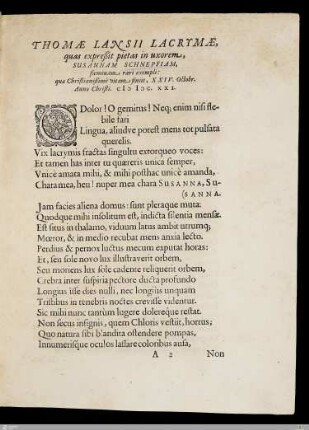 THOMÆ LANSII LACRYMÆ,
quas expressit pietas in uxorem,
SUSANNAM SCHNEPFIAM,
fœminam rari exempli:
quæ Christianissime vitam finiit, XXIV. Octobr.
Anno Christi. CIↃ IↃC. XXI.
O Dolor! O gemitus! Neq; enim nisi fle-
bile fari
Lingua, aliudve potest mens tot pulsata
querelis.
Vix lacrymis fractas singultu extorqueo voces:
Et tamen has inter tu quæreris unica semper,
Unicè amata mihi, & mihi posthac unicè amanda,
Chara mea, heu! nuper mea chara SUSANNA, SU-
(SANNA.
Jam facies aliena domus: sunt pleraque muta:
Quodque mihi insolitum est, indicta silentia mensæ.
Est situs in thalamo, viduum latus ambit utrumq;
Mœror, & in medio recubat mens anxia lecto.
Perdius & pernox luctus mecum exputat horas:
Et, seu sole novo lux illustraverit orbem,
Seu moriens lux sole cadente reliquerit orbem,
Crebra inter suspiria pectore ducta profundo
Longius isse dies nulli, nec longiùs unquam
Tristibus in tenebris noctes crevisse videntur.
Sic mihi nunc tantùm lugere dolereque restat.
Non secus insignis, quem Chloris vestiit, hortus;
Quo natura sibi blandita ostendere pompas,
Innumerisque oculos lassare coloribus ausa,
A 2 Non